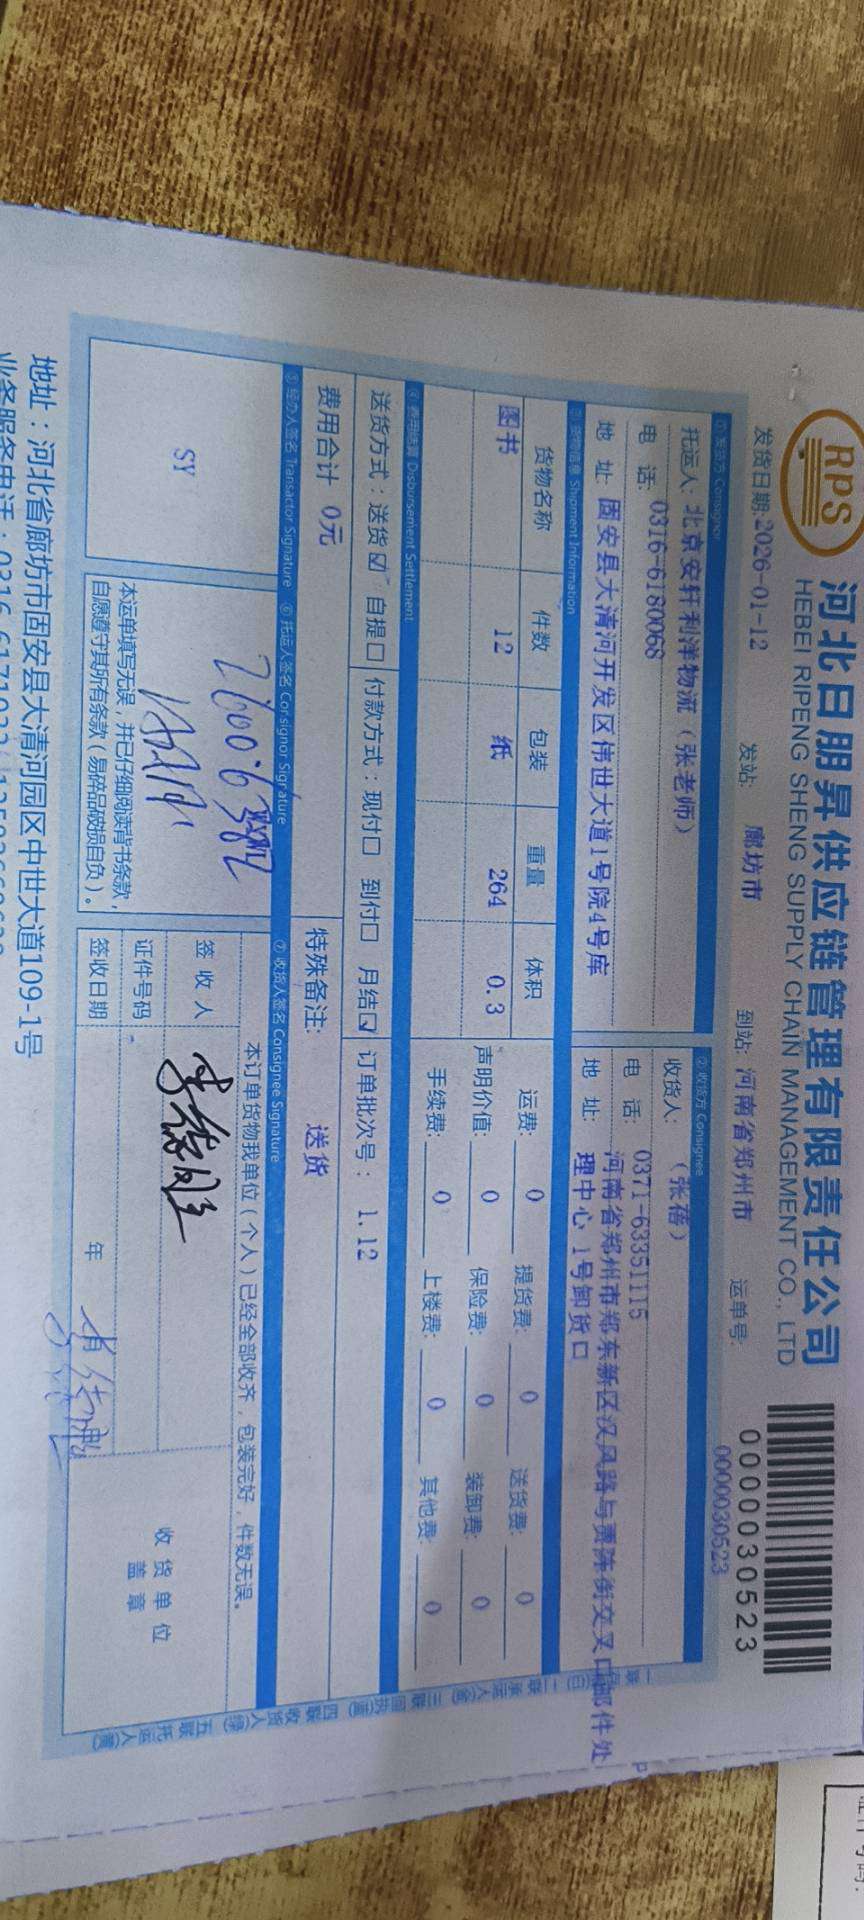 RPS
河北日朋昇供应链管理有限责任公司
HEBEI RIPENG SHENG SUPPLY CHAIN MANAGEMENT CO., LTD
0000030523
发货日期:2026-01-12 发站: 廊坊市 到站: 河南省郑州市 运单号: 0000030523
①发货方 Consignor
托运人: 北京安轩利洋物流（张老师）
电 话: 0316-6180068
地 址: 固安县大清河开发区伟世大道1号院4号库
②收货方 Consignee
收货人: （张蓓）
电 话: 0371-63351115
地 址: 河南省郑州市郑东新区汉风路与贾陈街交叉口邮件处
理中心 1号卸货口
③货物信息 Shipment Information
货物名称 件数 包装 重量 体积
图书 12 纸 264 0.3
运费: 0 提货费: 0 送货费: 0
声明价值: 0 保险费: 0 装卸费: 0
手续费: 0 上楼费: 0 其他费: 0
④费用结算 Disbursement Settlement
送货方式：送货☑ 自提□ 付款方式：现付□ 到付□ 月结☑ 订单批次号： 1.12
费用合计 0元 特殊备注: 送货
⑤经办人签名 Transactor Signature ⑥托运人签名 Consignor Signature ⑦收货人签名 Consignee Signature
SY
本运单填写无误，并已仔细阅读背书条款，
自愿遵守其所有条款（易碎品破损自负）。
本订单货物我单位（个人）已经全部收齐，包装完好，件数无误。
签 收 人
证件号码
签收日期 年
收货单位
盖 章
地址：河北省廊坊市固安县大清河园区中世大道109-1号